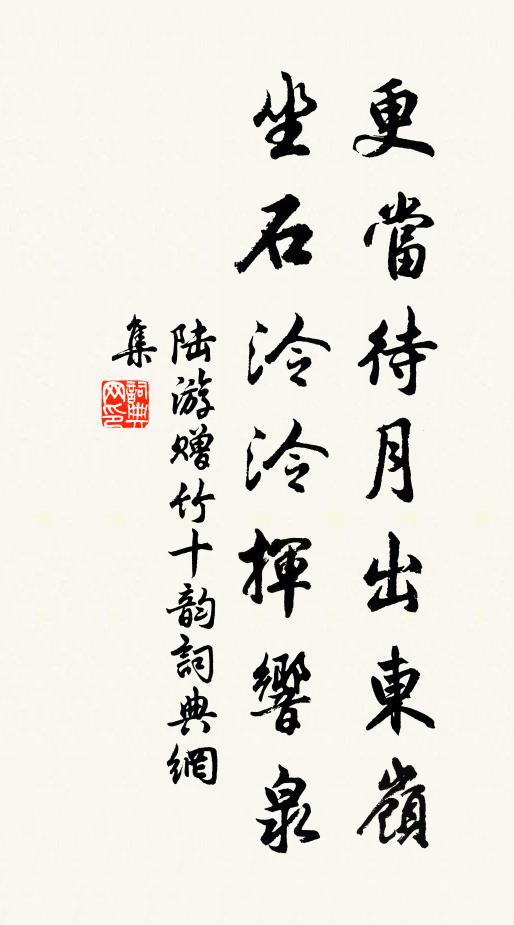 更當待月出東嶺
坐石泠泠揮響泉
陆游赠竹十韵詞典網
集
詞典网印